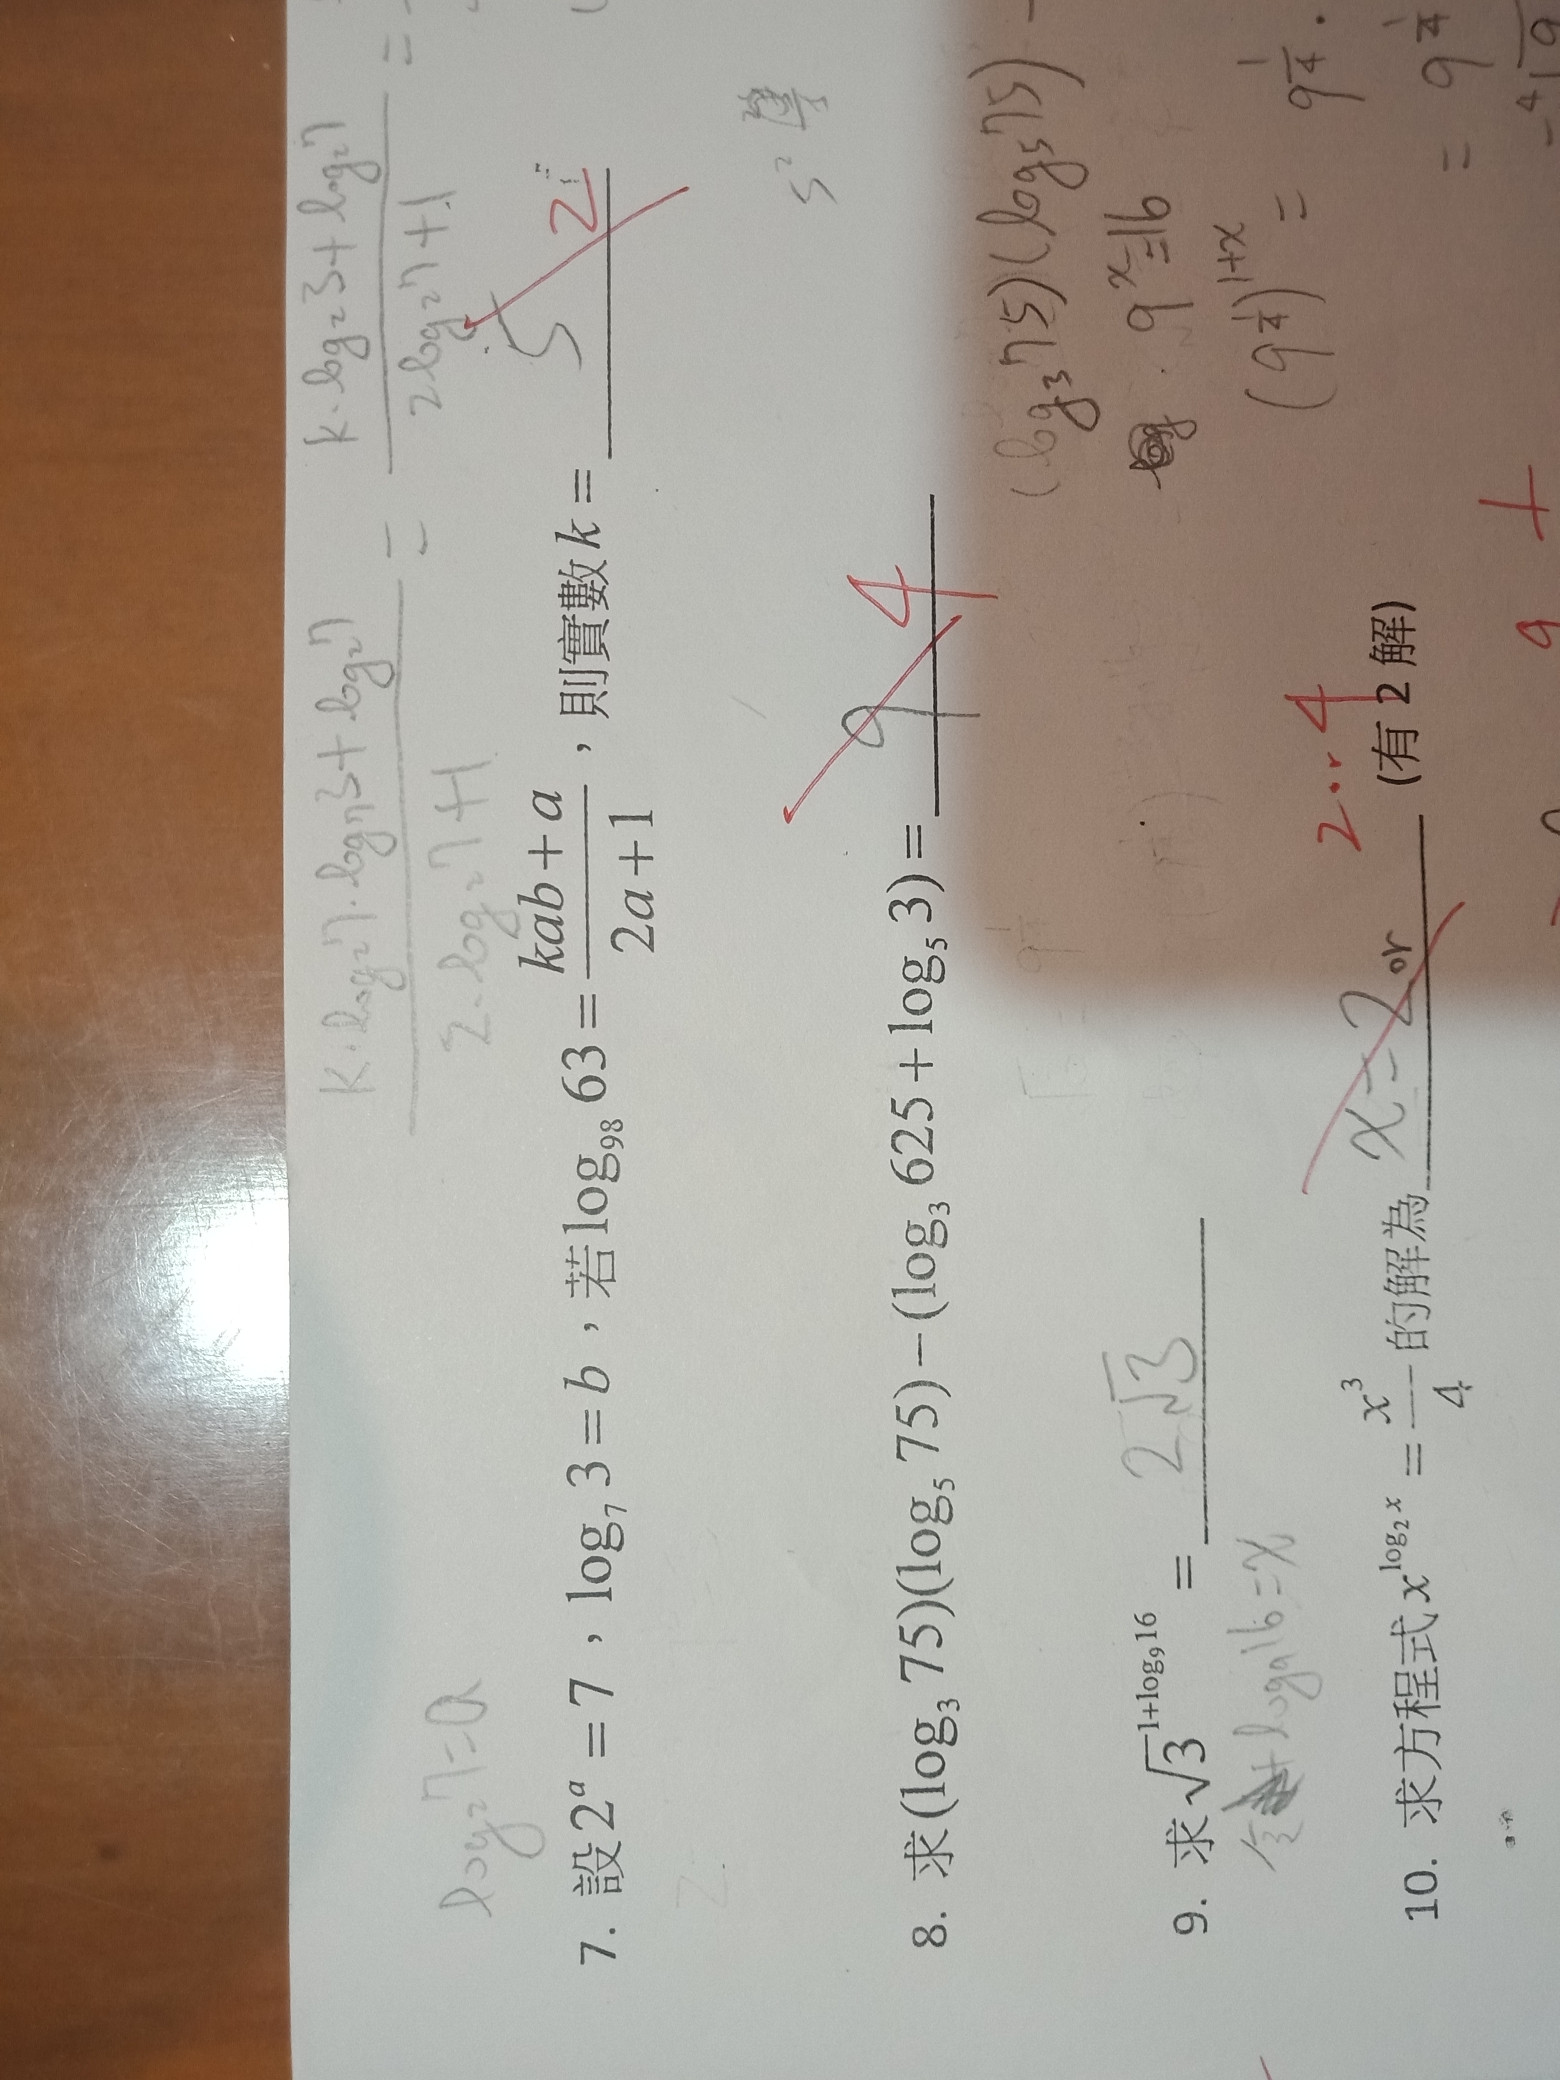 k·log₂7·log₇3+log₂7 = k·log₂3+log₂7 =
log₂7=a 2·log₂7+1 = 2log₂7+1
7. 設2ᵃ=7,log₇3=b,若log₉₈63=(kab+a)/(2a+1),則實數k= 5 2
8. 求(log₃75)(log₅75)−(log₃625+log₅3)= 9 4
(log₃75)(log₅75) −
9. 求√3^(1+log₉16) = 2√3
9ˣ=16
令 log₉16=x
(9^(1/4))^(1+x) = 9^(1/4) ·
10. 求方程式x^(log₂x)=x³/4的解為 x=2 or (有2解)
2 or 4
= 9^(1/4)